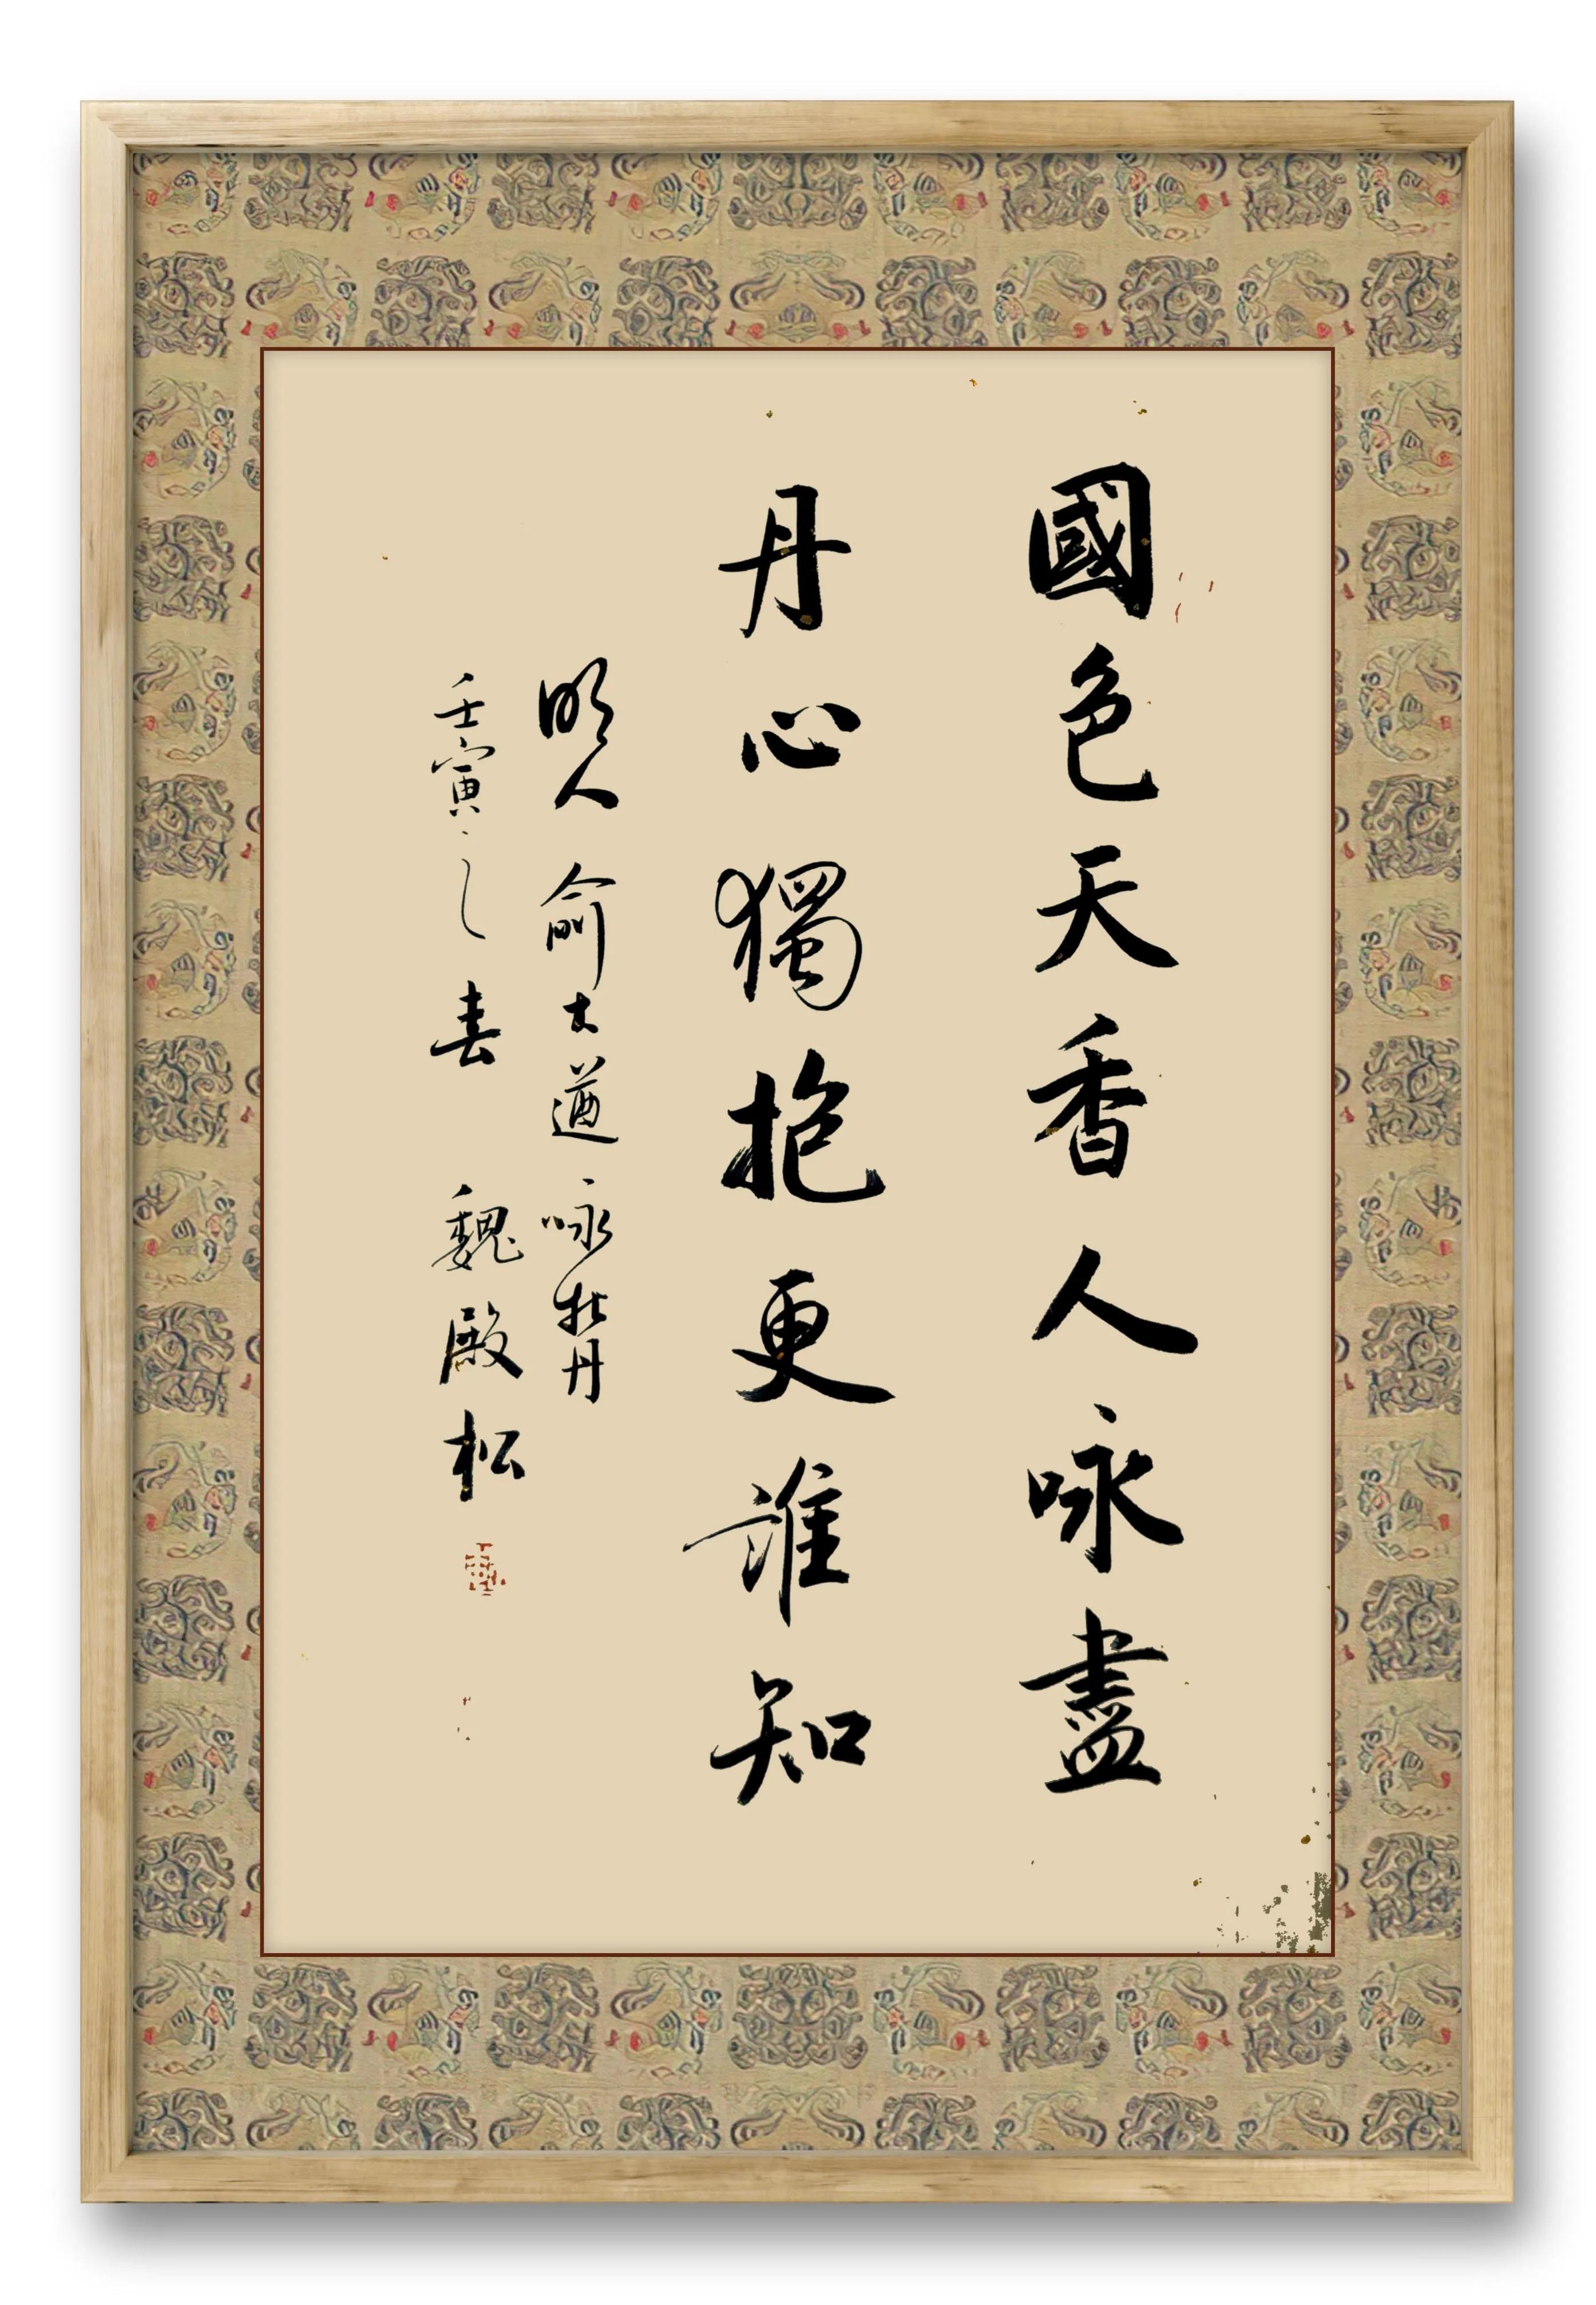 國色天香人咏盡
丹心獨抱更誰知
明人俞大遒咏牡丹
壬寅之春 魏殿松